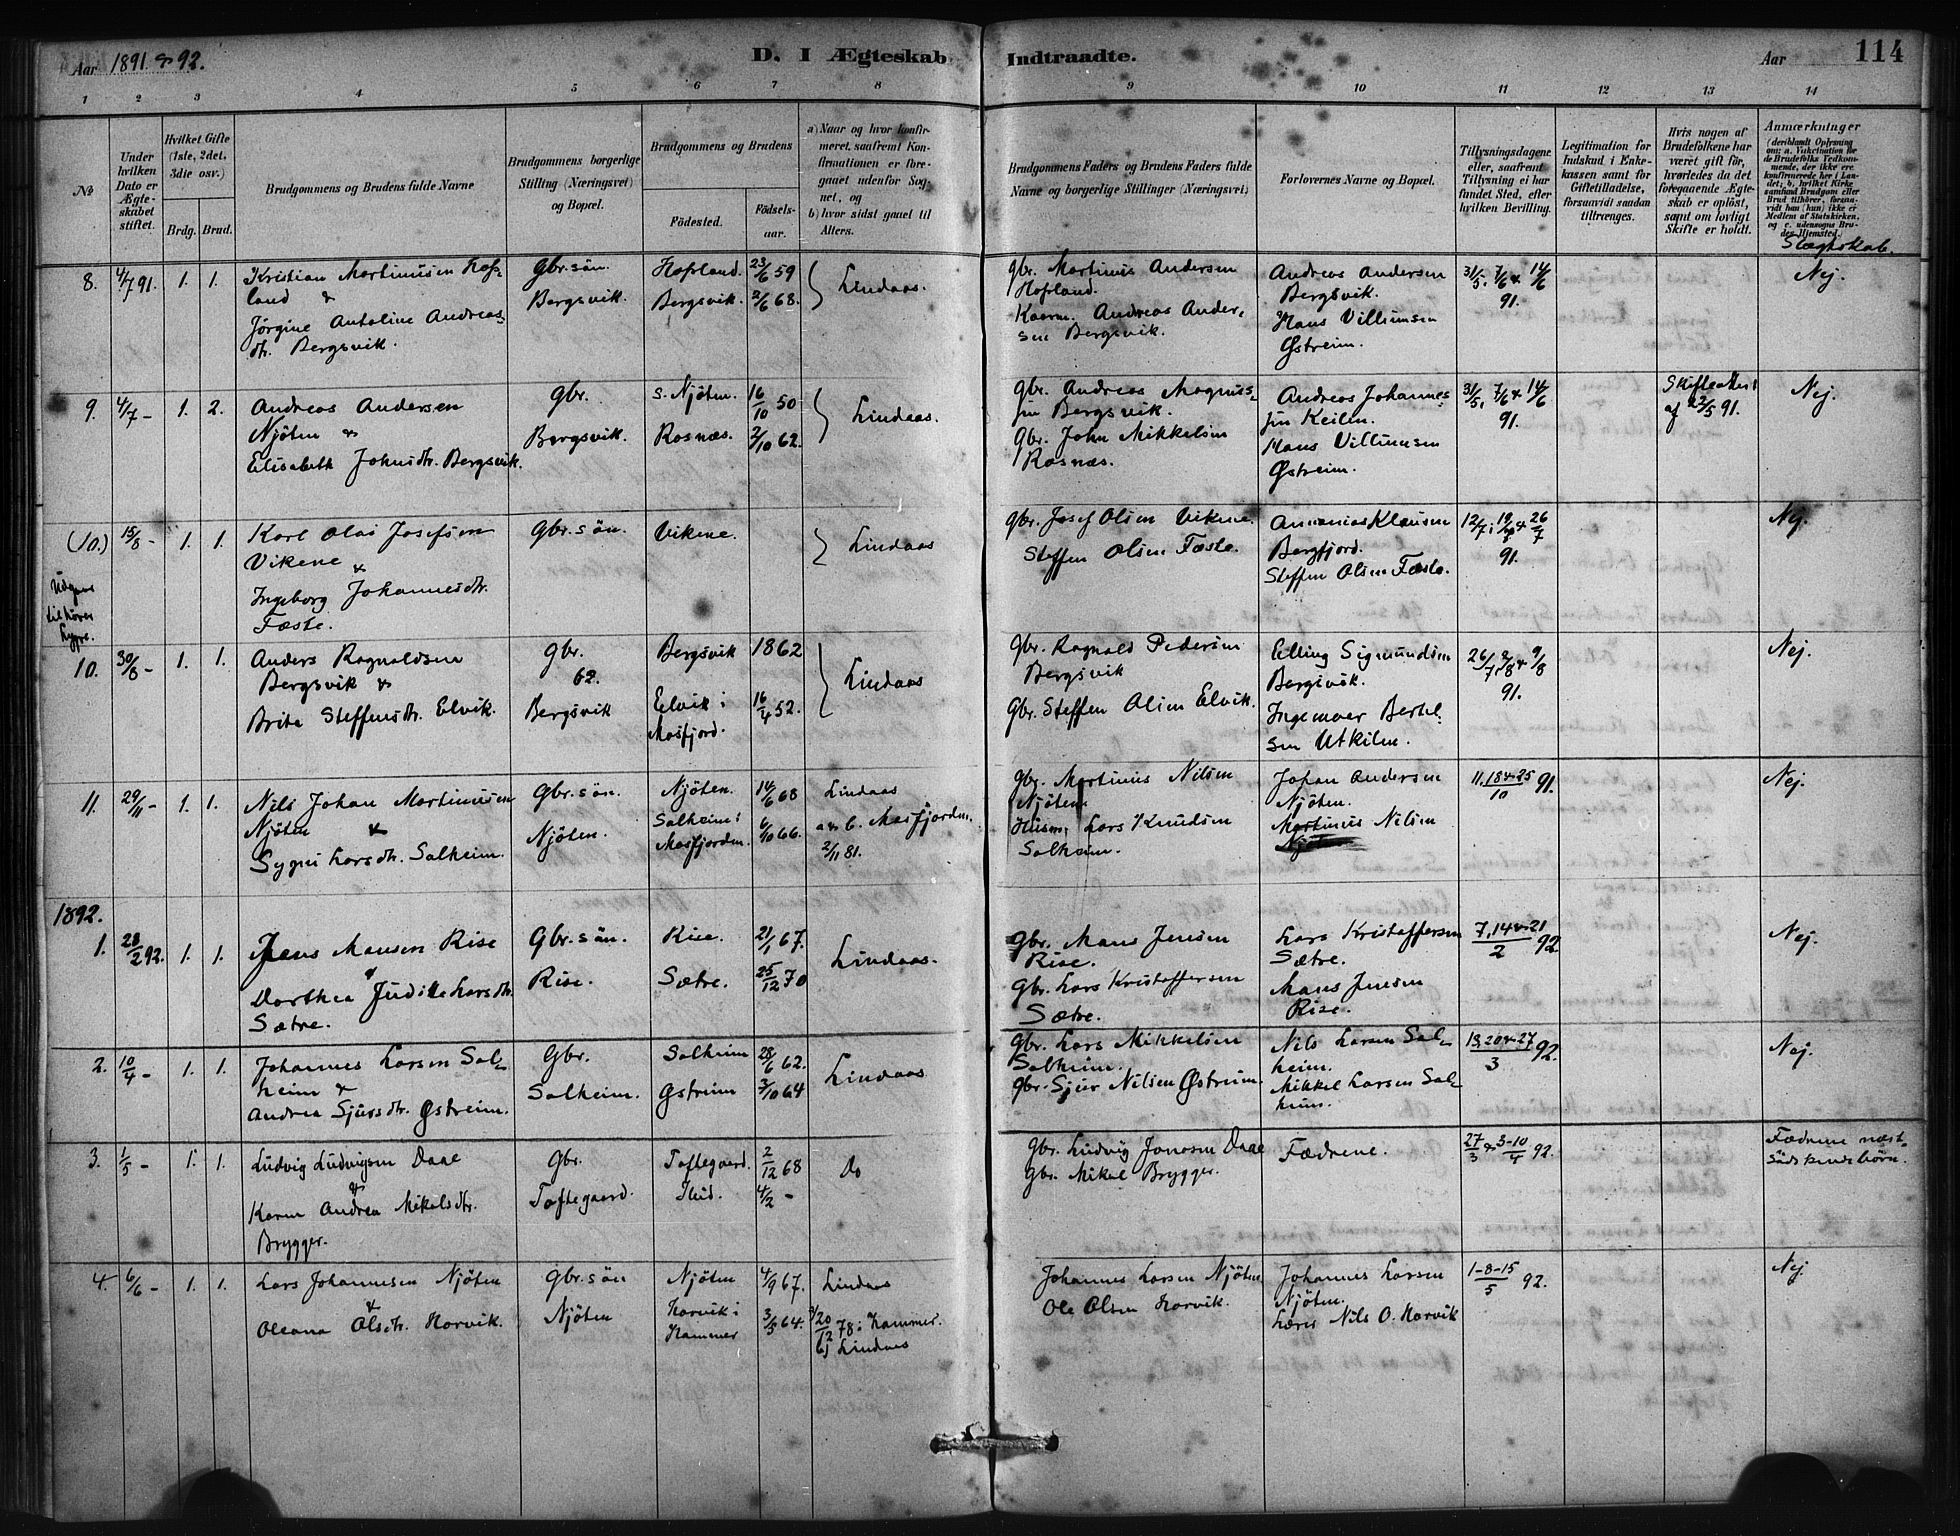 Aar 1891 & 92.
D. I Ægteskab Indtraadte.
Aar
114
1 2 3 4 5 6 7 8 9 10 11 12 13 14
No
Under hvilken Dato er Ægteskabet stiftet.
Hvilket Gifte (1ste, 2det, 3die osv.)
Brdg. Brud.
Brudgommens og Brudens fulde Navne
Brudgommens borgerlige Stilling (Næringsvei) og Bopæl.
Brudgommens og Brudens
Födested.
Födselsaar.
a) Naar og hvor konfirmeret, saafremt Konfirmationen er foregaaet udenfor Sognet, og
b) hvor sidst gaaet til Alters.
Brudgommens Faders og Brudens Faders fulde Navne og borgerlige Stillinger (Næringsvei)
Forlovernes Navne og Bopæl.
Tillysningsdagene eller, saafremt Tillysning ei har fundet Sted, efter hvilken Bevilling.
Legitimation for Indskud i Enkekassen samt for Giftetilladelse, forsaavidt saadan tiltrænges.
Hvis nogen af Brudefolkene har været gift før, hvorledes da det foregaaende Ægteskab er oplöst, samt om lovligt Skifte er holdt.
Anmærkninger
Slægtskab.
8. 4/7 91. 1. 1.
Kristian Martinusen Hopland &
Jörgine Antoline Andreasdtr. Bergsvik.
Gbr.sön.
Bergsvik.
Hopland. 23/6 59
Bergsvik. 2/6 68.
Lindaas.
gbr. Martinus Andersen
Hopland.
Kaarm. Andreas Andersen Bergsvik.
Andreas Andersen
Bergsvik.
Hans Villumsen
Østreim.
31/5, 7/6 & 14/6
91.
Nej.
9. 4/7 - 1. 2.
Andreas Andersen
Njöten &
Elisabeth Johnsdtr. Bergsvik.
Gbr.
Bergsvik.
S. Njöten. 16/10 50
Rosnæs. 2/10 62.
Lindaas.
gbr. Andreas Magnussen Bergsvik.
gbr. John Mikkelsen
Rosnæs.
Andreas Johannessen Keilen.
Hans Villumsen
Østreim.
31/5, 7/6 & 14/6
91.
Skifteattest
af 22/5 91.
Nej.
(10.) 15/8 - 1. 1.
Udgaar
tilhører
Lygre.
Karl Olai Josefsen
Vikene &
Ingeborg Johannesdtr.
Fæste.
Gbr.sön.
Vikene.
Lindaas
gbr. Josef Olsen Vikene.
Steffen Olsen Fæste.
Ananias Klausen
Bergfjord.
Steffen Olsen Fæste.
12/7, 19/7 & 26/7
91.
Nej.
10. 30/8 - 1. 1.
Anders Ragnaldsen
Bergsvik &
Brita Steffensdtr. Elvik.
Gbr.
62.
Bergsvik
Bergsvik 1862
Eelvik i
Masfjord. 16/4 52.
Lindaas
gbr. Ragnald Pedersen
Bergsvik
Gbr. Steffen Olsen Elvik.
Elling Sigmundsen
Bergsvik.
Ingemar Bertelsen Utkilen.
26/7, 2/8 & 9/8
91.
Nej.
11. 29/11 - 1. 1.
Nils Johan Martinusen
Njöten &
Sygni Larsdtr. Solheim.
Gbr.sön.
Njöten.
Njöten. 14/6 68
Solheim i
Masfjorden. 6/10 66.
Lindaas
a & b. Masfjorden.
2/11 81.
gbr. Martinus Nilsen
Njöten
Husm. Lars Knudsen
Solheim.
Johan Andersen
Njöten.
Martinus Nilsen
Njöten
11, 18 & 25/10 91.
Nej.
1892.
1. 28/2 92. 1. 1.
Jens Mansen Rise
&
Dorthea Juditte Larsdtr.
Sætre.
Gbr.sön.
Rise.
Rise. 21/1 67.
Sætre. 25/12 70
Lindaas.
gbr. Mans Jensen
Rise.
Gbr. Lars Kristoffersen
Sætre.
Lars Kristoffersen
Sætre.
Mans Jensen
Rise.
7, 14 & 21/2 92
Nej.
2. 10/4 - 1. 1.
Johannes Larsen Solheim &
Andrea Sjursdtr. Østreim.
Gbr.
Solheim.
Solheim 28/6 62.
Østreim 3/10 64
Lindaas
gbr. Lars Mikkelsen
Solheim.
gbr. Sjur Nilsen Østreim.
Nils Larsen Solheim.
Mikkel Larsen Solheim.
13, 20 & 27/3 92.
Nej.
3. 1/5 - 1. 1.
Ludvig Ludvigsen Daae
&
Karen Andrea Mikalsdtr.
Brygger.
Gbr.
Toftegaard.
Toftegaard. 2/12 68
Ibid. 4/2 -
Do
gbr. Ludvig Jonasen Daae
gbr. Mikal Brygger.
Fædrene.
27/3 & 3-10/4 92.
Fædrene næstsödskendebörn.
4. 6/6 - 1. 1.
Lars Johannesen Njöten
&
Oleana Olsdtr. Horvik.
Gbr.sön
Njöten
Njöten 4/9 67.
Horvik i
Hammer 3/5 64.
Lindaas
a) 20/12 78 i Hammer.
b) Lindaas
Johannes Larsen Njöten
Ole Olsen Horvik.
Johannes Larsen
Njöten.
Lærer Nils O. Horvik
1-8-15/5 92.
Nej.